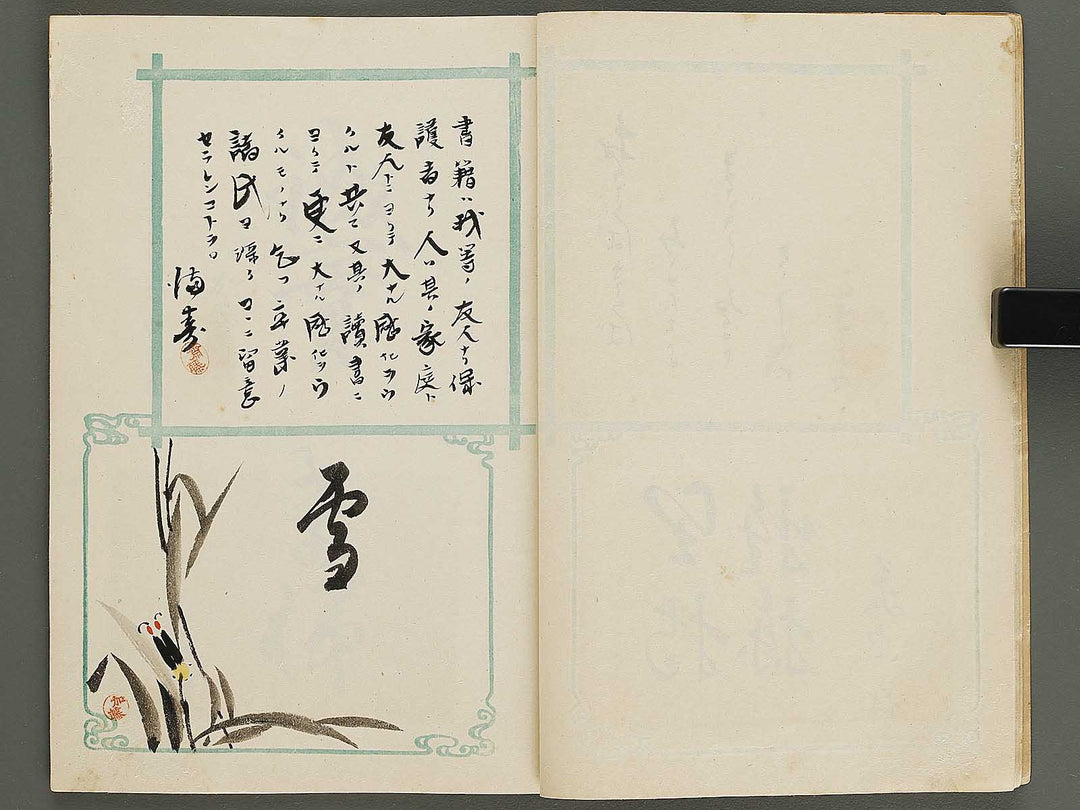 書籍ハ我等ノ友人ナリ保
護者ナリ人ハ其ノ家庭ト
友人トニヨリテ大ナル感化ヲウ
クルト共ニ又其ノ讀書ニ
ヨリテ更ニ大ナル感化ヲウ
クルモノナリ乞フ卒業ノ
諸氏ヨ深クココニ留意
セラレンコトヲ。
壽
雪
加藤